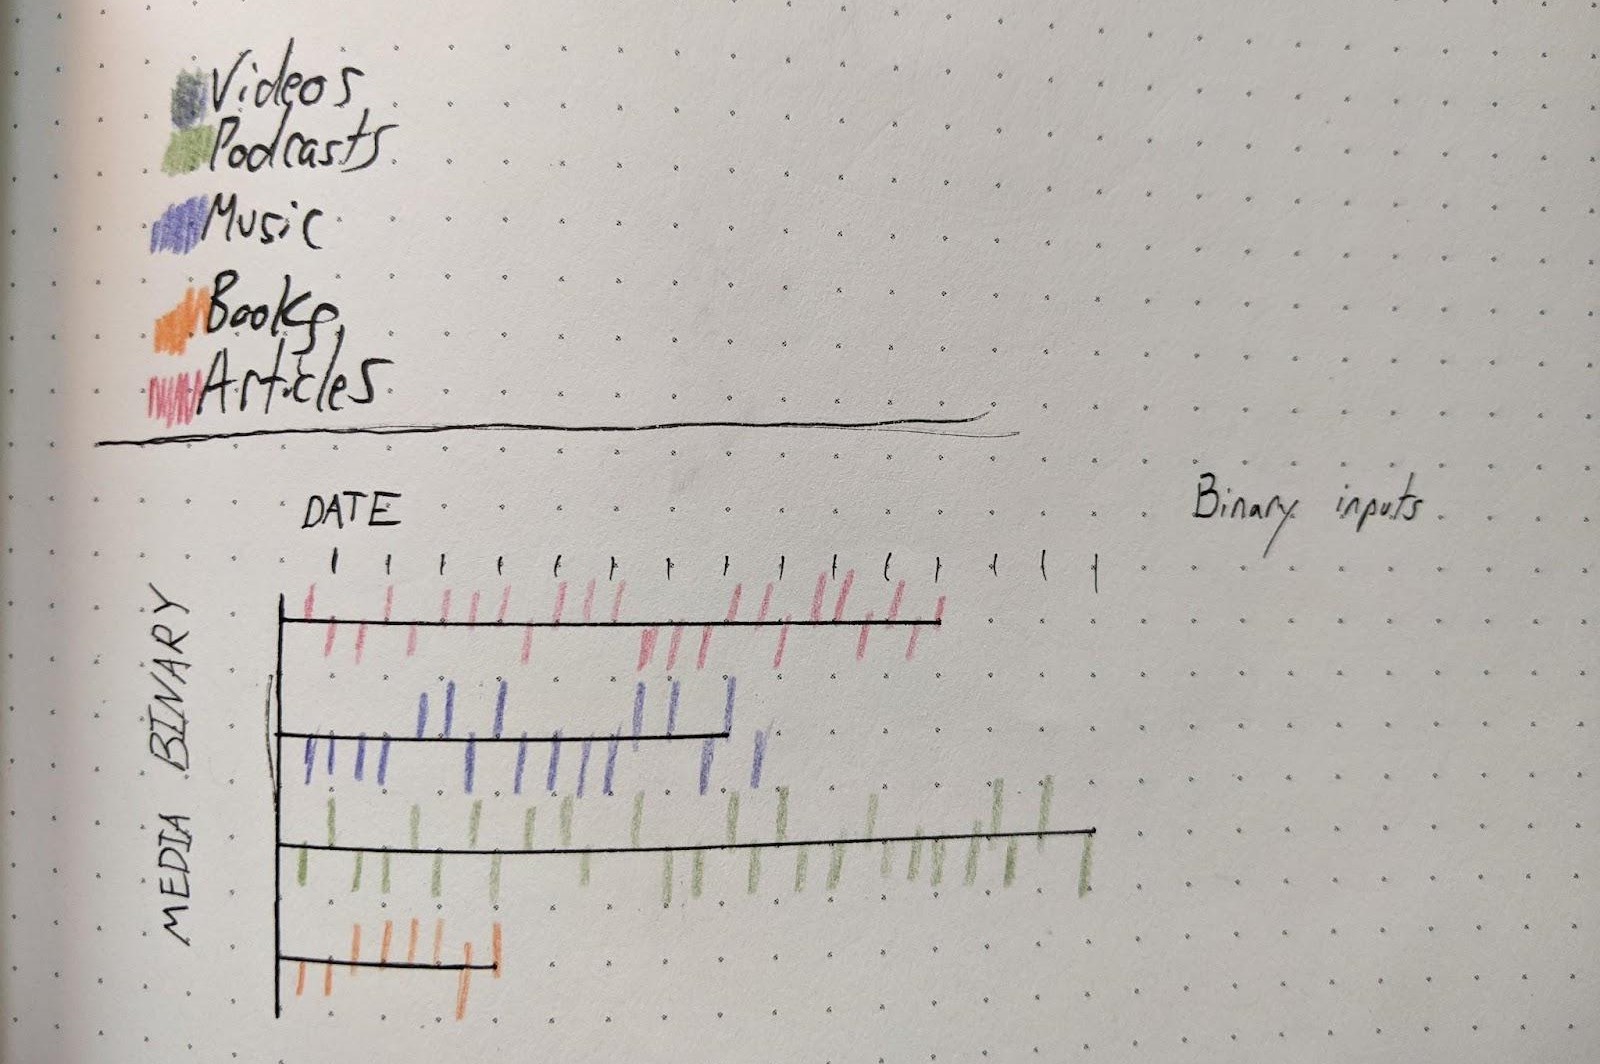 Videos
Podcasts
Music
Books
Articles
DATE
Binary inputs
MEDIA BINARY